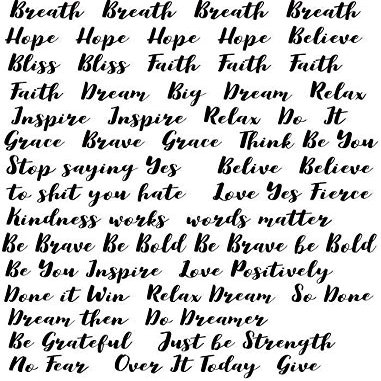 Breath Breath Breath Breath
Hope Hope Hope Hope Believe
Bliss Bliss Faith Faith Faith
Faith Dream Big Dream Relax
Inspire Inspire Relax Do It
Grace Brave Grace Think Be You
Stop saying Yes Belive Believe
to shit you hate Love Yes Fierce
Kindness works words matter
Be Brave Be Bold Be Brave be Bold
Be You Inspire Love Positively
Done it Win Relax Dream So Done
Dream then Do Dreamer
Be Grateful Just be Strength
No Fear Over It Today Give